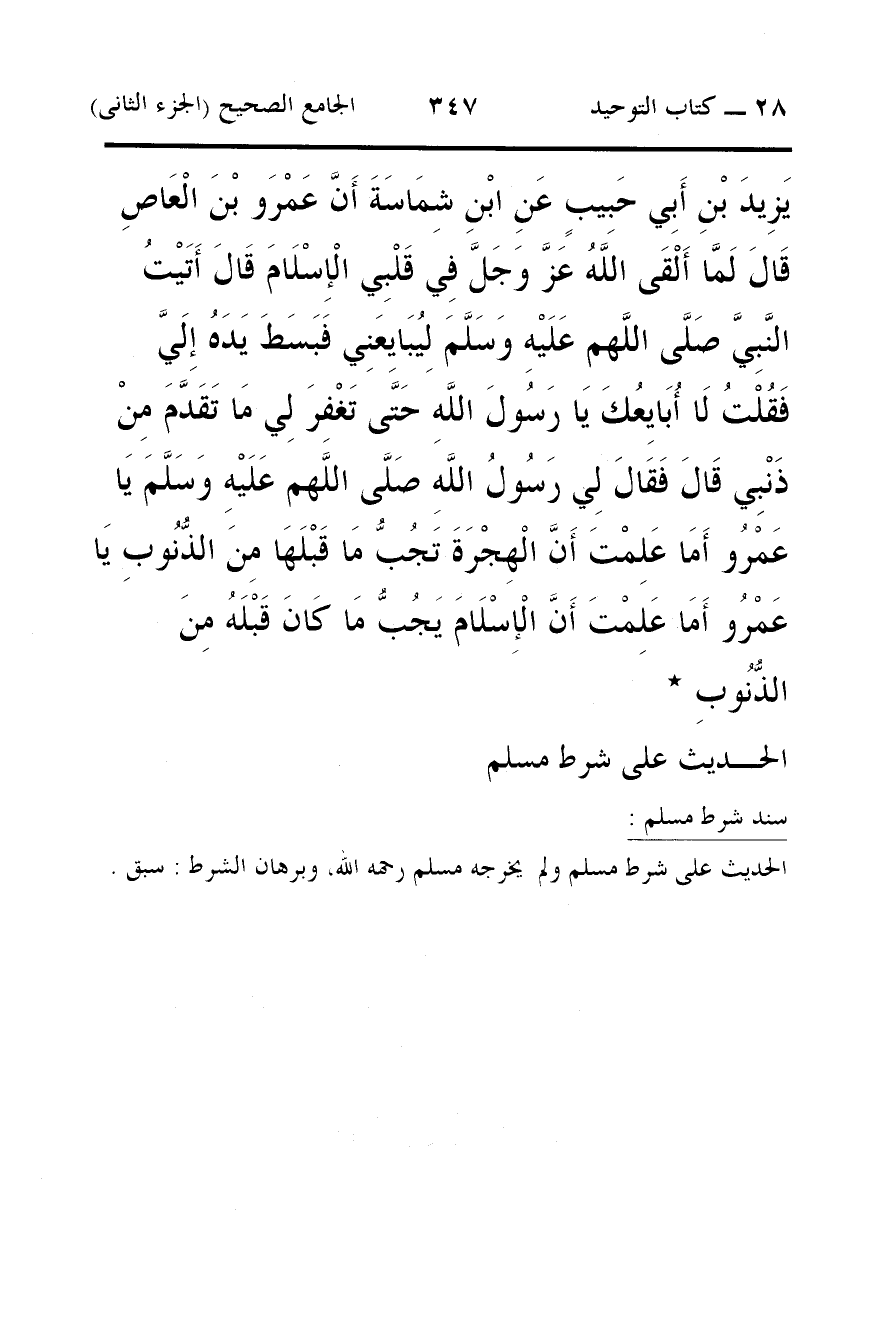 ٢٨ ــ كتاب التوحيد ٣٤٧ الجامع الصحيح (الجزء الثانى)
يَزِيدَ بْنِ أَبِي حَبِيبٍ عَنِ ابْنِ شِمَاسَةَ أَنَّ عَمْرَو بْنَ الْعَاصِ
قَالَ لَمَّا أَلْقَى اللَّهُ عَزَّ وَجَلَّ فِي قَلْبِي الْإِسْلَامَ قَالَ أَتَيْتُ
النَّبِيَّ صَلَّى اللَّهم عَلَيْهِ وَسَلَّمَ لِيُبَايِعَنِي فَبَسَطَ يَدَهُ إِلَيَّ
فَقُلْتُ لَا أُبَايِعُكَ يَا رَسُولَ اللَّهِ حَتَّى تَغْفِرَ لِي مَا تَقَدَّمَ مِنْ
ذَنْبِي قَالَ فَقَالَ لِي رَسُولُ اللَّهِ صَلَّى اللَّهم عَلَيْهِ وَسَلَّمَ يَا
عَمْرُو أَمَا عَلِمْتَ أَنَّ الْهِجْرَةَ تَجُبُّ مَا قَبْلَهَا مِنَ الذُّنُوبِ يَا
عَمْرُو أَمَا عَلِمْتَ أَنَّ الْإِسْلَامَ يَجُبُّ مَا كَانَ قَبْلَهُ مِنَ
الذُّنُوبِ *
الحـــديث على شرط مسلم
سند شرط مسلم :
الحديث على شرط مسلم ولم يخرجه مسلم رحمه الله، وبرهان الشرط : سبق .